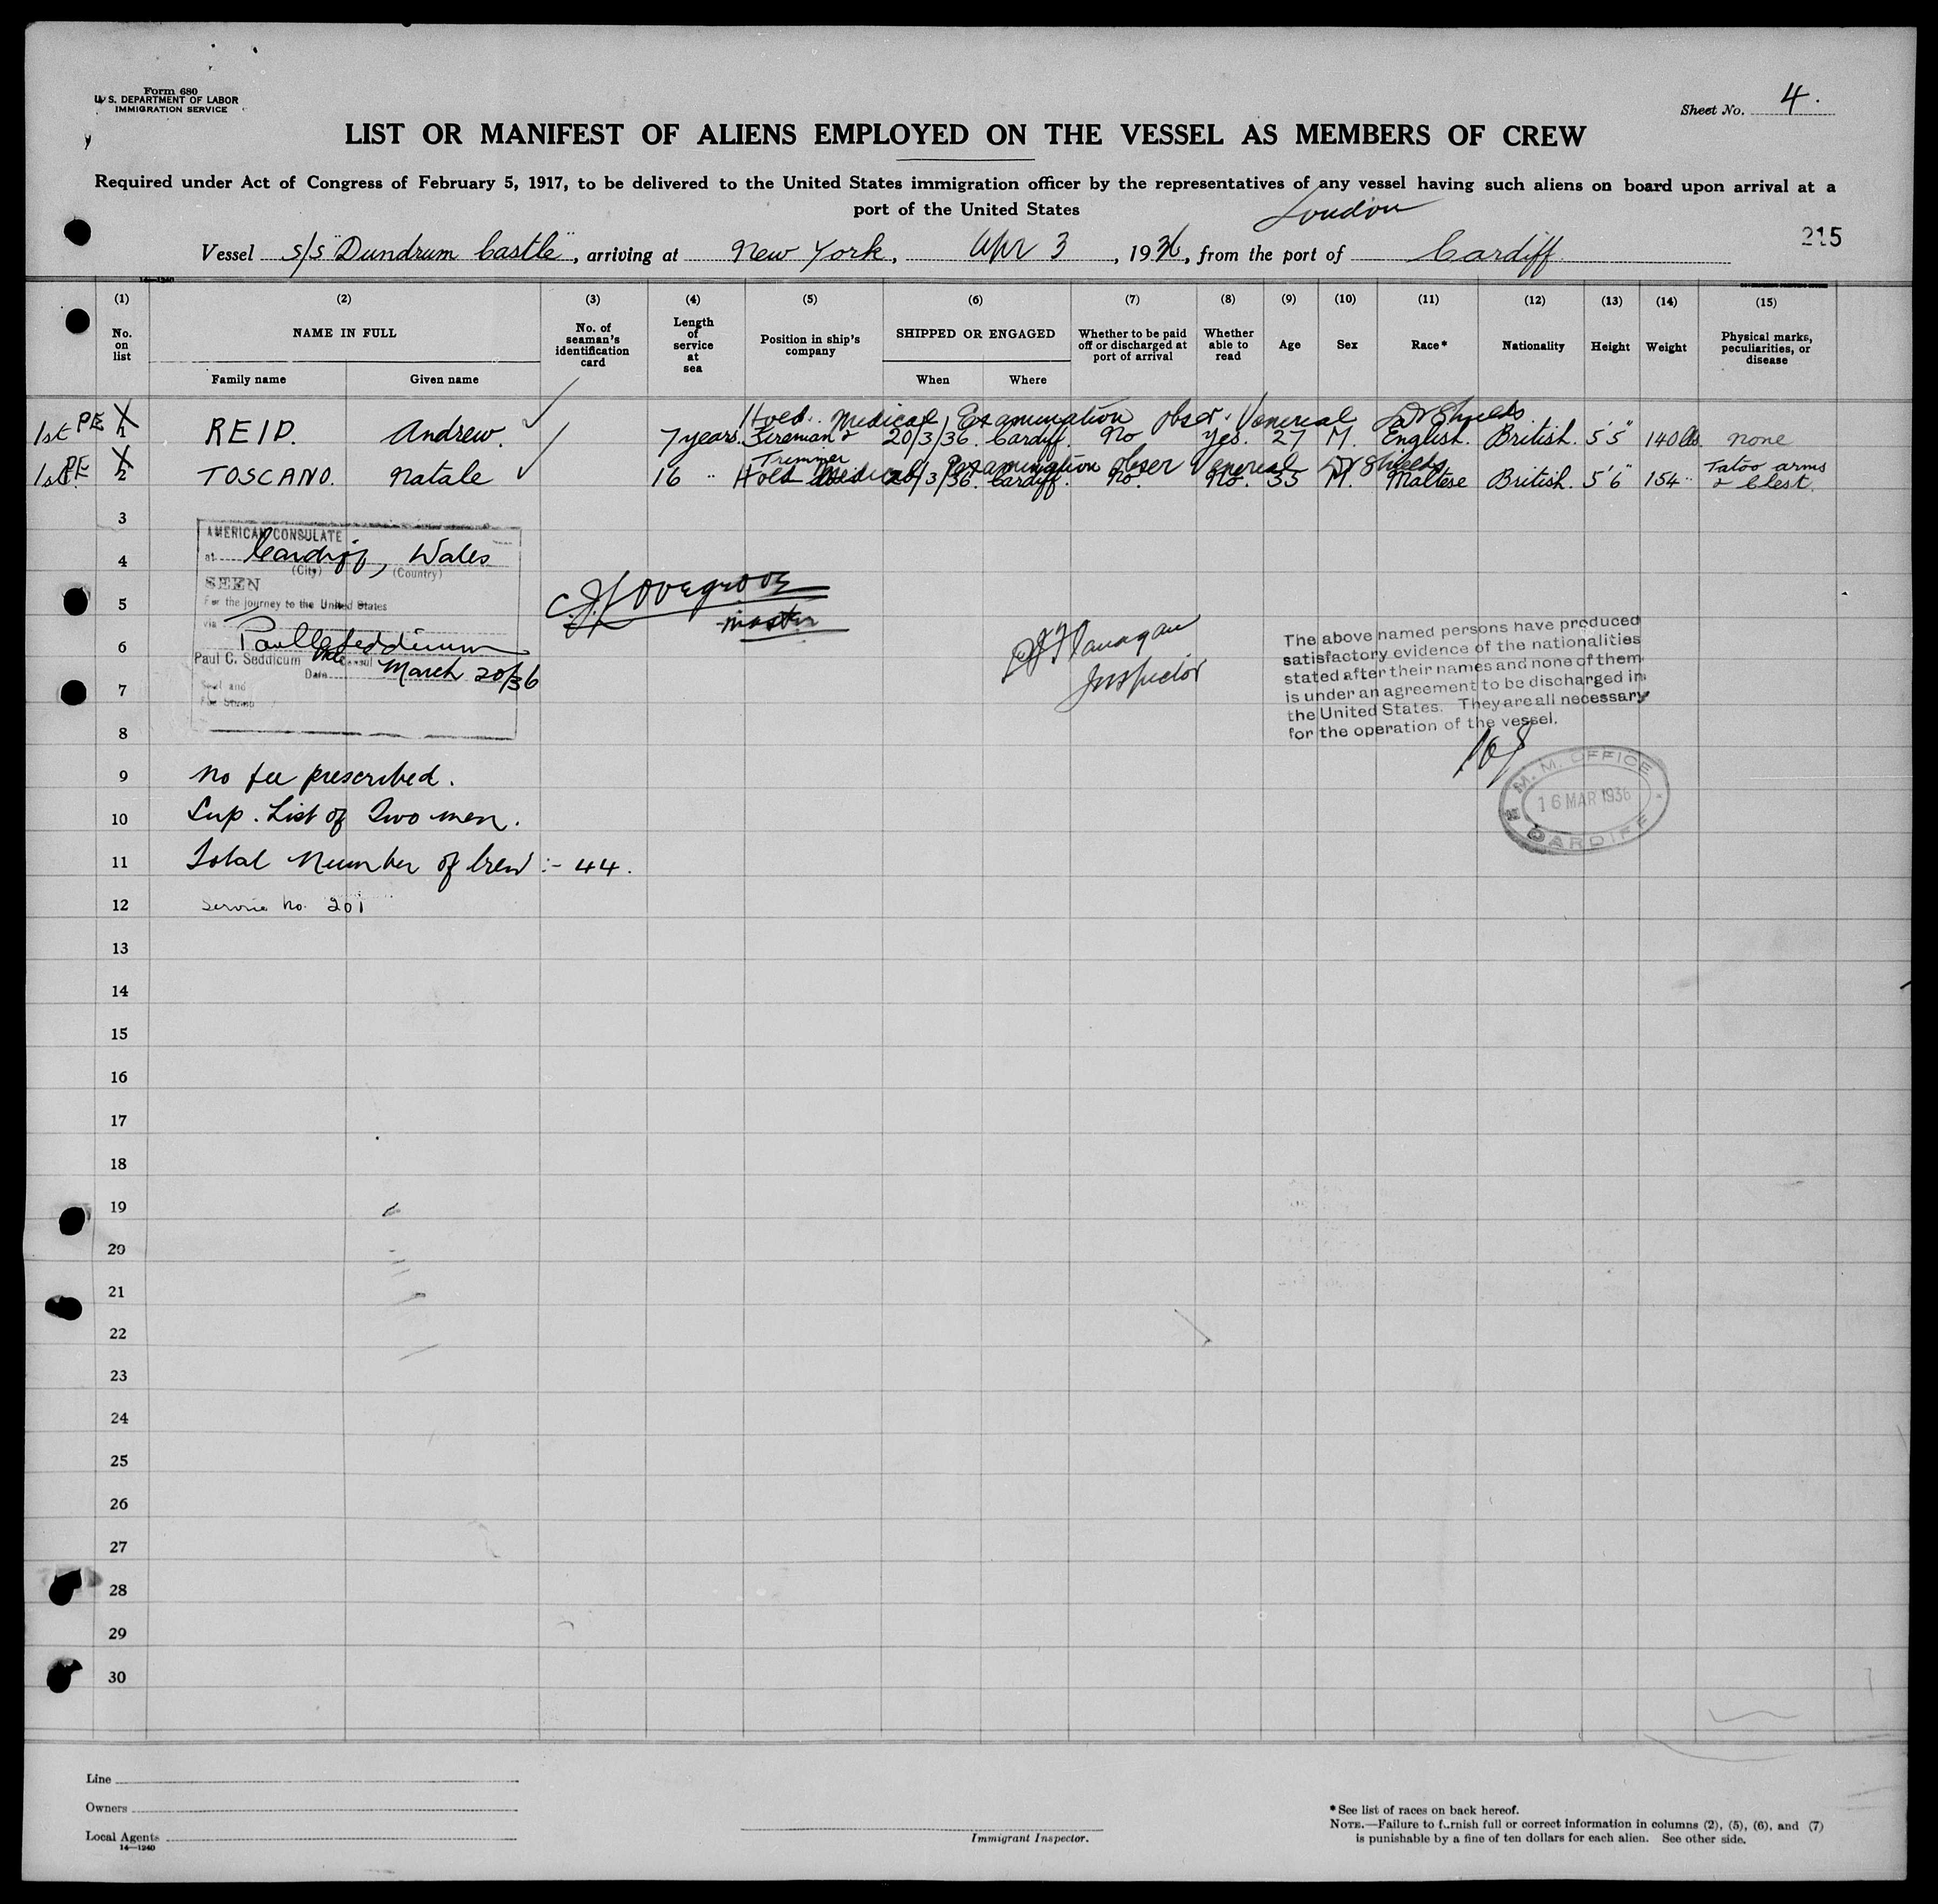 Form 680
U. S. DEPARTMENT OF LABOR
IMMIGRATION SERVICE
Sheet No. 4.
LIST OR MANIFEST OF ALIENS EMPLOYED ON THE VESSEL AS MEMBERS OF CREW
Required under Act of Congress of February 5, 1917, to be delivered to the United States immigration officer by the representatives of any vessel having such aliens on board upon arrival at a
port of the United States
London
215
Vessel S/S "Dundrum Castle", arriving at New York, Apr 3, 1936, from the port of Cardiff
14-1240
(1) (2) (3) (4) (5) (6) (7) (8) (9) (10) (11) (12) (13) (14) (15)
No. on list
NAME IN FULL
Family name Given name
No. of seaman's identification card
Length of service at sea
Position in ship's company
SHIPPED OR ENGAGED
When Where
Whether to be paid off or discharged at port of arrival
Whether able to read
Age
Sex
Race*
Nationality
Height
Weight
Physical marks, peculiarities, or disease
Held. Medical Examination obser. Venereal Dr Shields
1st PE 1 REID. Andrew. 7 years. Fireman & Trimmer 20/3/36. Cardiff. No Yes. 27 M. English. British. 5'5" 140 lbs. None
Held Medical Examination obser Venereal Dr Shields
1st PE 2 TOSCANO. Natale 16 " 20/3/36. Cardiff. No. No. 35 M. Maltese British. 5'6" 154 " Tatoo arms & Chest.
3
AMERICAN CONSULATE
4 at Cardiff, Wales
(City) (Country)
SEEN
5 For the journey to the United States
via
C. J. Lovegrove
master
6 Paul C. Seddicum
Paul C. Seddicum Vice Consul
Date March 20/36
7 Seal and
Fee Stamp
8
Flanagan
Inspector
The above named persons have produced
satisfactory evidence of the nationalities
stated after their names and none of them
is under an agreement to be discharged in
the United States. They are all necessary
for the operation of the vessel.
M. M. OFFICE
16 MAR 1936
CARDIFF
9 No fee prescribed.
10 Sup. List of Two men.
11 Total Number of Crew :- 44.
12 Service No. 201
13
14
15
16
17
18
19
20
21
22
23
24
25
26
27
28
29
30
Line
Owners
Local Agents
14-1240
Immigrant Inspector.
*See list of races on back hereof.
NOTE.—Failure to furnish full or correct information in columns (2), (5), (6), and (7)
is punishable by a fine of ten dollars for each alien. See other side.